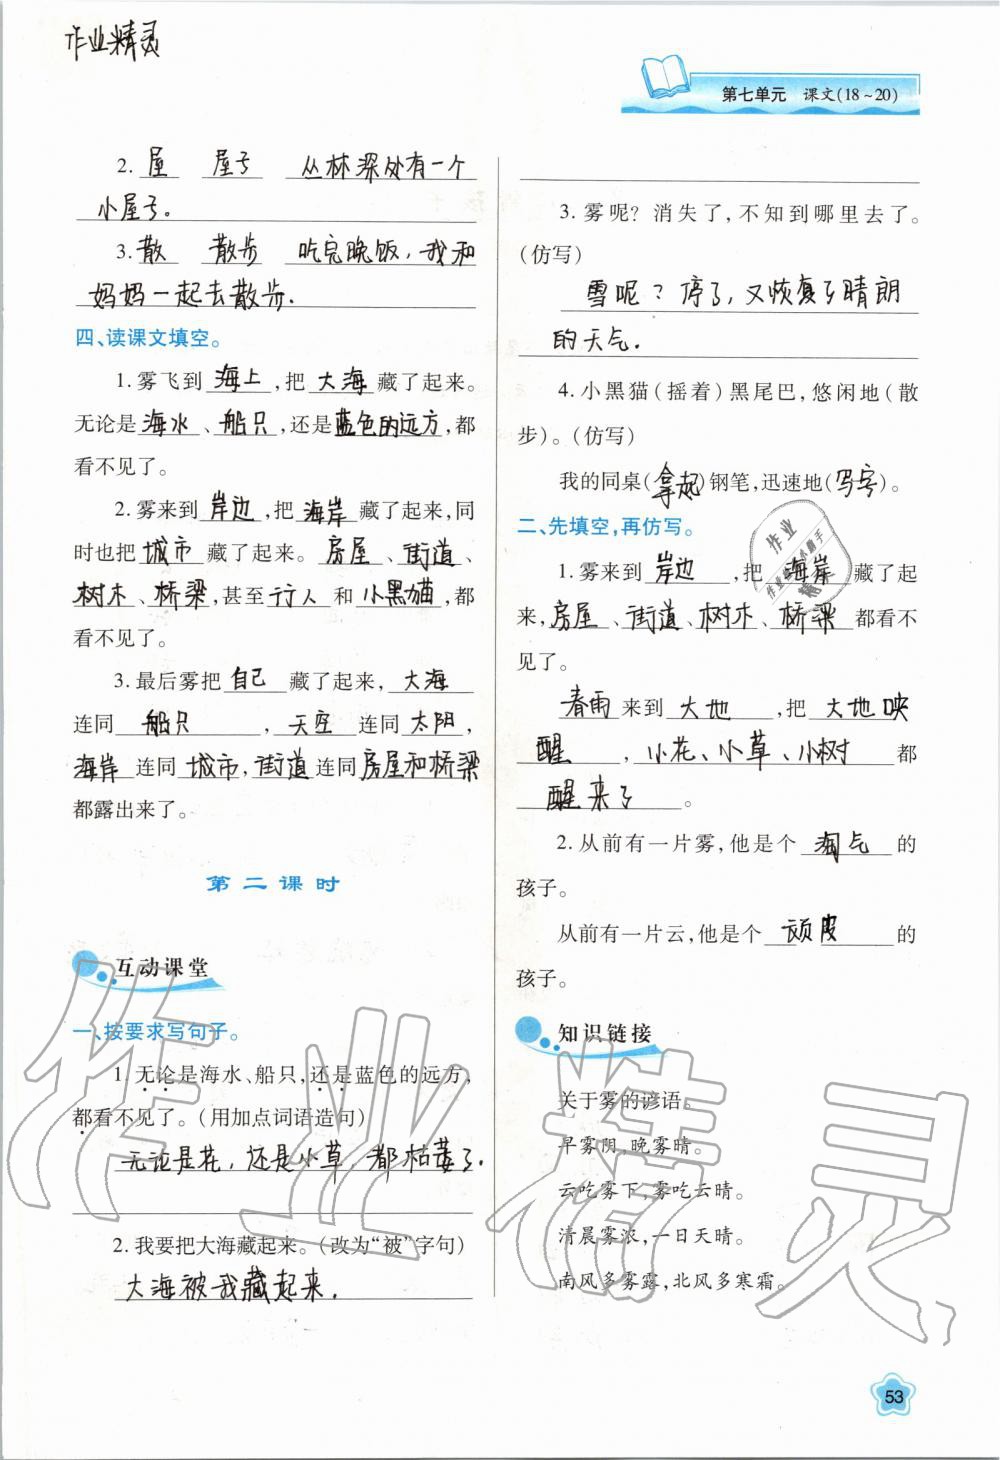 作业精灵
第七单元 课文(18~20)
2. 屋 屋子 丛林深处有一个
小屋子。
3. 散 散步 吃完晚饭,我和
妈妈一起去散步.
四、读课文填空。
1. 雾飞到 海上 ,把 大海 藏了起来。
无论是 海水 、 船只 ,还是 蓝色的远方 ,都
看不见了。
2. 雾来到 岸边 ,把 海岸 藏了起来,同
时也把 城市 藏了起来。 房屋 、 街道 、
树木 、 桥梁 ,甚至 行人 和 小黑猫 ,都
看不见了。
3. 最后雾把 自己 藏了起来, 大海
连同 船只 , 天空 连同 太阳 ,
海岸 连同 城市 , 街道 连同 房屋和桥梁
都露出来了。
第二课时
互动课堂
一、按要求写句子。
1. 无论是海水、船只,还是蓝色的远方,
都看不见了。(用加点词语造句)
无论是花,还是小草,都枯萎了.
2. 我要把大海藏起来。(改为“被”字句)
大海被我藏起来.
3. 雾呢? 消失了,不知到哪里去了。
(仿写)
雪呢? 停了,又恢复了晴朗
的天气.
4. 小黑猫(摇着)黑尾巴,悠闲地(散
步)。(仿写)
我的同桌(拿起)钢笔,迅速地(写字)。
二、先填空,再仿写。
1. 雾来到 岸边 ,把 海岸 藏了起
来, 房屋 、 街道 、 树木 、 桥梁 都看不
见了。
春雨 来到 大地 ,把 大地唤
醒 , 小花、小草、小树 都
醒来了 。
2. 从前有一片雾,他是个 淘气 的
孩子。
从前有一片云,他是个 顽皮 的
孩子。
知识链接
关于雾的谚语。
早雾阴,晚雾晴。
云吃雾下,雾吃云晴。
清晨雾浓,一日天晴。
南风多雾露,北风多寒霜。
作业精灵
53